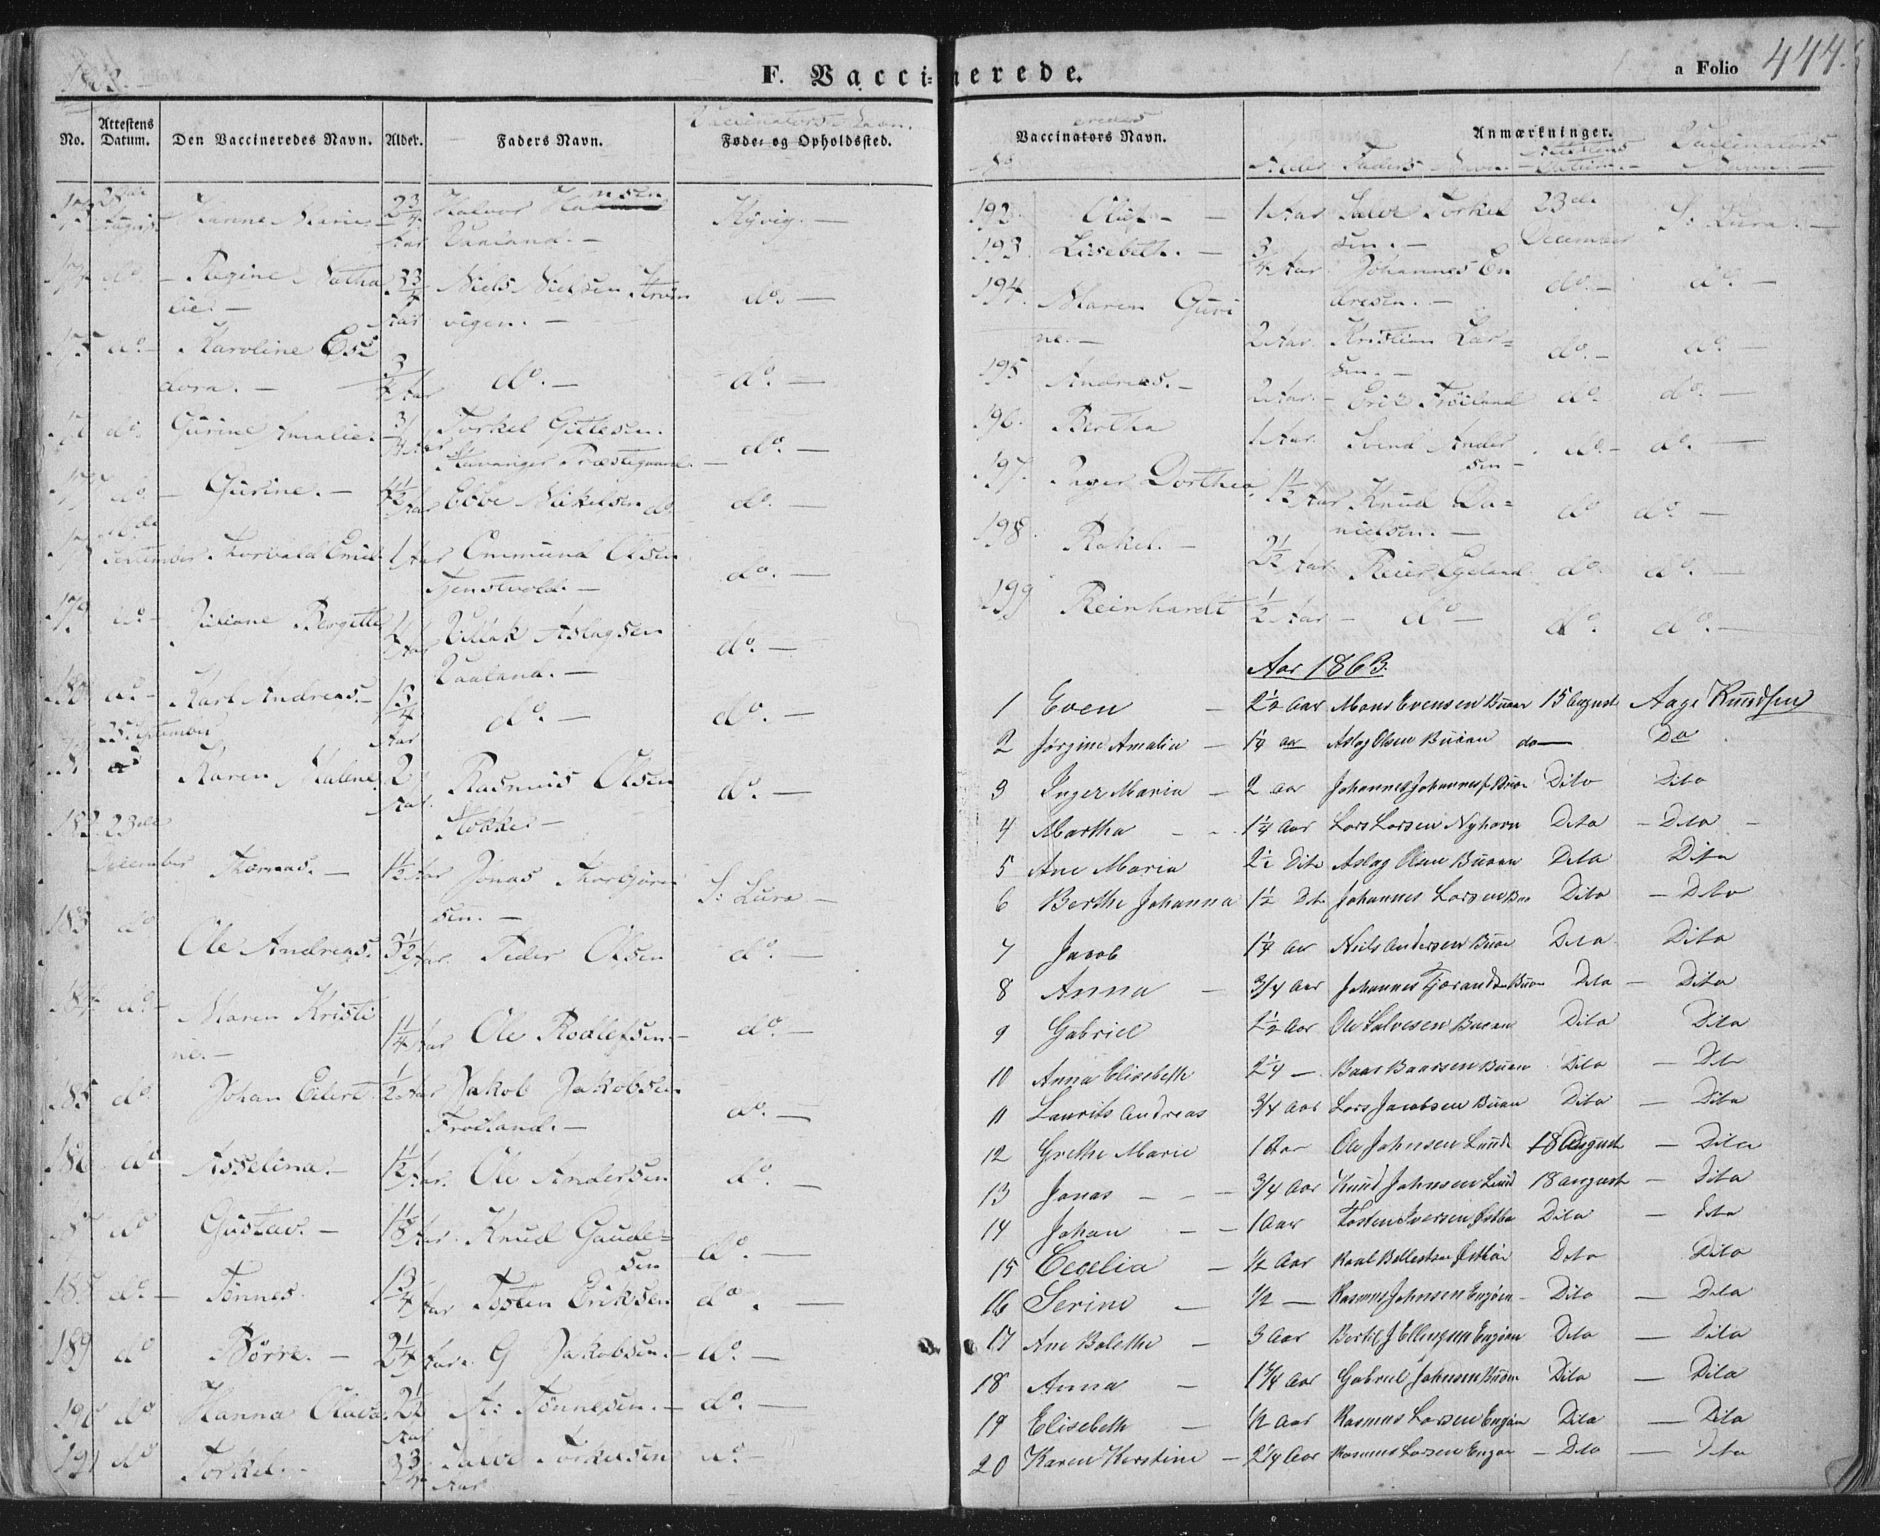 F. Vaccinerede.
a Folio 444.
No. Attestens Datum. Den Vaccineredes Navn. Alder. Faders Navn. Føde- og Opholdssted.
Vaccinators Navn. Anmærkninger.
Alder Faders Navn Attestens Datum Vaccinators Navn
173 August Karine Marie 2 3/4 Aar Halvor Hansen Kyvig. —
Vaaland. —
174 do — Regine Natha 3 3/4 Aar Niels Nielsen Strøm do. —
lie. — vigen. —
175 do — Karoline Esi 3/4 Aar do. — do. —
dora. —
do. Gurine Amalie. 3/4 Aar Torkel Gittesen. do. —
Stavanger Præstegaard. —
do. — Gurine. — 1 1/2 Aar Ebbe Mikkelsen do. do. —
September Thorvald Emil 1 Aar Ommund Olsen do. —
Tjenstvold. —
179 do — Juliane Bergitte Aar Villik Aslagsen do. —
Vaaland. —
180 do — Karl Andreas. — 1 3/4 Aar do. — do. —
25 September
Karen Malene. 2 Aar Rasmus Olsen do. —
Stokke —
182 23de December Thomas. — 1 1/2 Aar Jonas Thorbjørn S: Lura —
sen. —
183 do Ole Andreas. 3 1/2 Aar. Peder Olsen do. —
184 do — Maren Kristi 1 1/4 Aar Ole Rodlefsen — do. —
ne. —
185 do. Johan Edert. 1/2 Aar Jakob Jakobsen do. —
Frøiland. —
186 do Asselina. — 1 1/2 Aar. Ole Andersen do. —
187 do Gustav. — 1 1/8 Aar. Knud Gaude= do. —
sen
188 do. — Tønnes. 1 3/4 Aar Tosten Eriksen do. —
189 do Børre. — 2 1/4 Aar. G Jakobsen. — do. —
190 do Hanna Olava. 2 1/2 Aar A: Tønnesen. — do. —
191 do Torkel. — 3 3/4 Aar Salve Torkelsen do. —
192. Oluf — 1 Aar Salve Torkel 23de December S: Lura. —
sen. —
193 Lisebeth. — 3/4 Aar. Johannes En do. — do. —
dresen. —
194. Maren Guri 2 Aar. Kristian Lar= do. — do. —
ne. — sen. —
195 Andreas. — 2 Aar. — Erik Frøiland do. do. —
196. Bertha 1 Aar. Svend Ander do. — do. —
sen —
197. Inger Dorthea. 1 1/2 Aar Knud Da= do do. —
nielsen. —
198. Rakel. — 2 1/2 Aar. Reier Egeland do. do. —
199 Reinhardt 1/2 Aar — do — do. do. —
Aar 1863.
1 Even — 2 1/2 Aar Mons Evensen Buøen 15 August Aage Knudsen
2 Jørgine Amalia — 1 1/4 aar Aslag Olsen Buøen do — Do
3 Inger Maria — 2 aar Johannes Johannes Buøe Dito Dito
4 Martha — 1 1/4 Aar Lars Larsen Nyhavn Dito — Dito —
5 Ane Maria 2 1/2 Dito Aslag Olsen Buøen Dito Dito
6 Berthe Johanna 1 1/2 Dito Johannes Larsen Bue Dito — Dito
7 Jacob 1 1/4 aar Niels Andersen Buøe Dito Dito
8 Anna — 3/4 aar Johannes Buøe Dito — Dito
9 Gabriel 2 1/2 Aar Ole Salvesen Buøen Dito Dito
10 Anna Elisebeth 2 1/4 — Baar Baarsen Buøen Dito — Dito
11 Laurits Andreas 3/4 Aar Lars Jacobsen Buøen Dito — Dito
12 Grethe Marie 1 Aar Ole Johnsen Lunde 18 August — Dito
13 Jonas — — — 3/4 Aar Knud Johnsen Lund 18 August — Dito
14 Johan — — 1 Aar Tosten Iversen Dito — Dito
15 Cecelia — 1/2 Aar Dito Dito
16 Serine — 1/2 — Rasmus Johnsen Engøen — Dito — Dito
17 Ane Bolethe — 3 Aar Bertil J Ellingsen Engøen Dito — Dito
18 Anna — 1 3/4 Aar Gabriel Johnsen Buøen Dito — Dito
19 Elisebeth — 1/2 Aar Rasmus Larsen Engøen Dito — Dito
20 Karen Kerstine — 2 1/4 Aar Rasmus Larsen Engøe — Dito — Dito